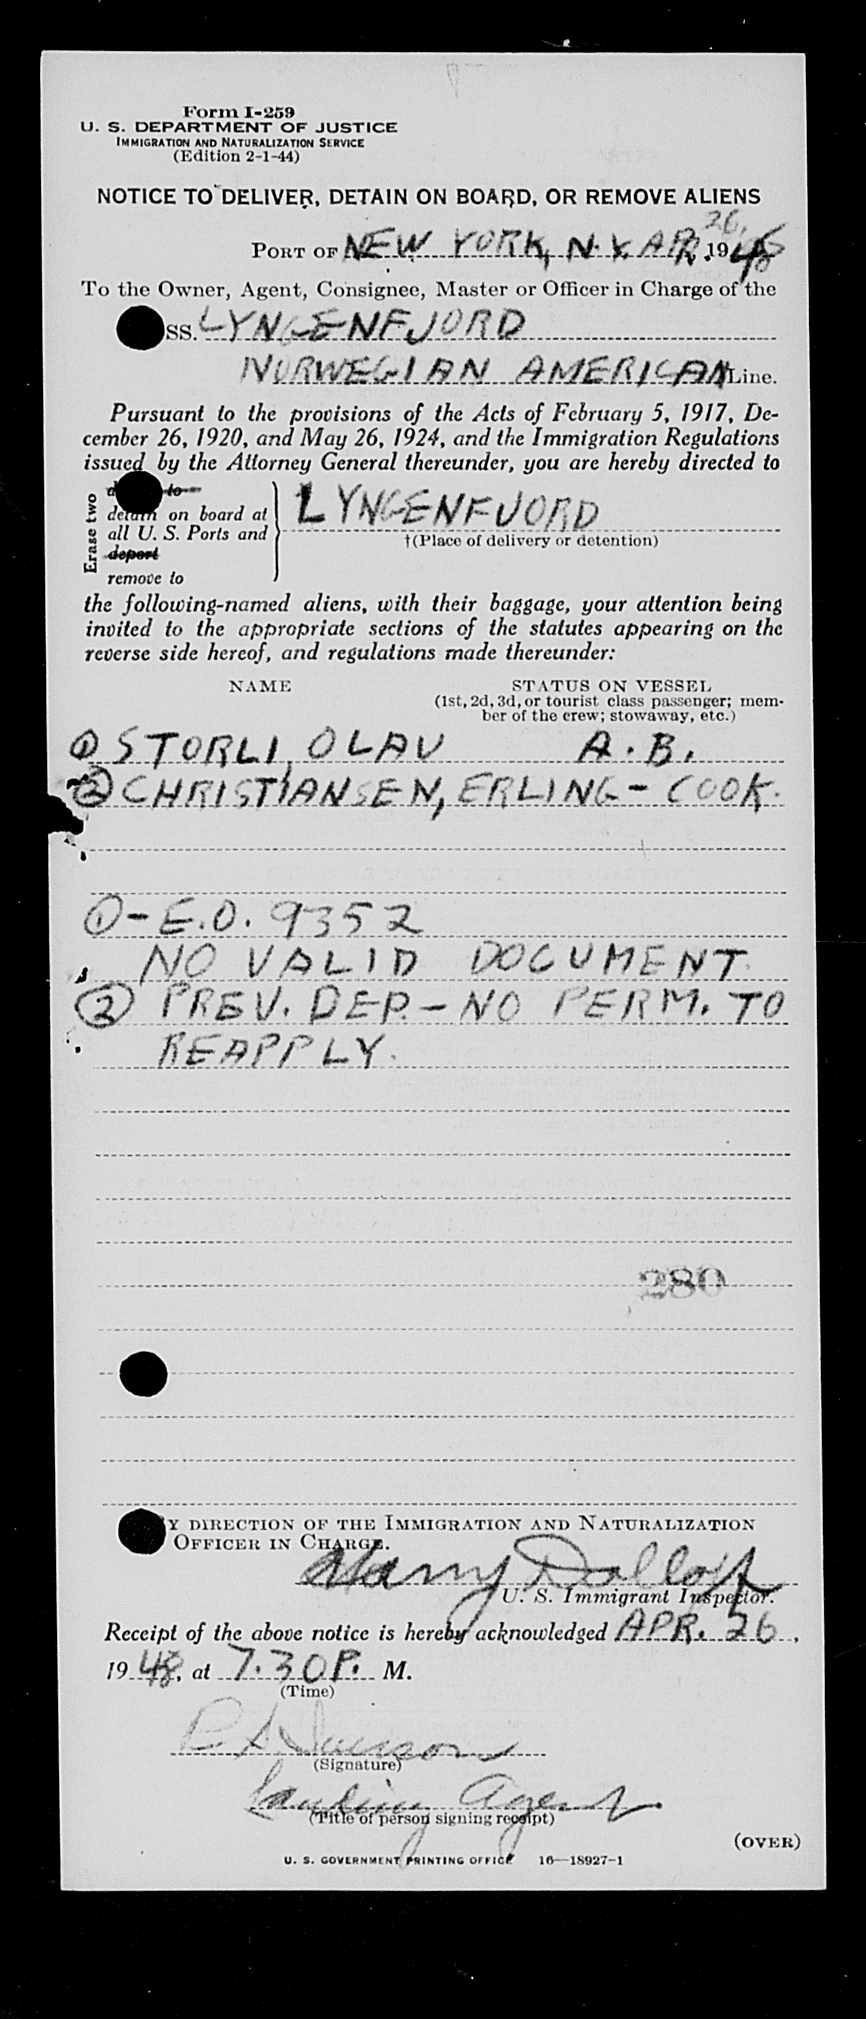 Form I-259
U. S. DEPARTMENT OF JUSTICE
IMMIGRATION AND NATURALIZATION SERVICE
(Edition 2-1-44)
NOTICE TO DELIVER, DETAIN ON BOARD, OR REMOVE ALIENS
PORT OF NEW YORK, N.Y. APR. 26, 1948
To the Owner, Agent, Consignee, Master or Officer in Charge of the
SS. LYNGENFJORD
NORWEGIAN AMERICAN Line.
Pursuant to the provisions of the Acts of February 5, 1917, De-
cember 26, 1920, and May 26, 1924, and the Immigration Regulations
issued by the Attorney General thereunder, you are hereby directed to
Erase two
to
detain on board at
all U. S. Ports and
deport
remove to
LYNGENFJORD
†(Place of delivery or detention)
the following-named aliens, with their baggage, your attention being
invited to the appropriate sections of the statutes appearing on the
reverse side hereof, and regulations made thereunder:
NAME STATUS ON VESSEL
(1st, 2d, 3d, or tourist class passenger; mem-
ber of the crew; stowaway, etc.)
① STORLI, OLAV A.B.
② CHRISTIANSEN, ERLING - COOK.
① - E.O. 9352
NO VALID DOCUMENT.
② PREV. DEP. - NO PERM. TO
REAPPLY.
280
Y DIRECTION OF THE IMMIGRATION AND NATURALIZATION
OFFICER IN CHARGE.
Harry
U. S. Immigrant Inspector.
Receipt of the above notice is hereby acknowledged APR. 26,
1948, at 7.30 P. M.
(Time)
(Signature)
Agent
(Title of person signing receipt)
(OVER)
U. S. GOVERNMENT PRINTING OFFICE 16—18927-1